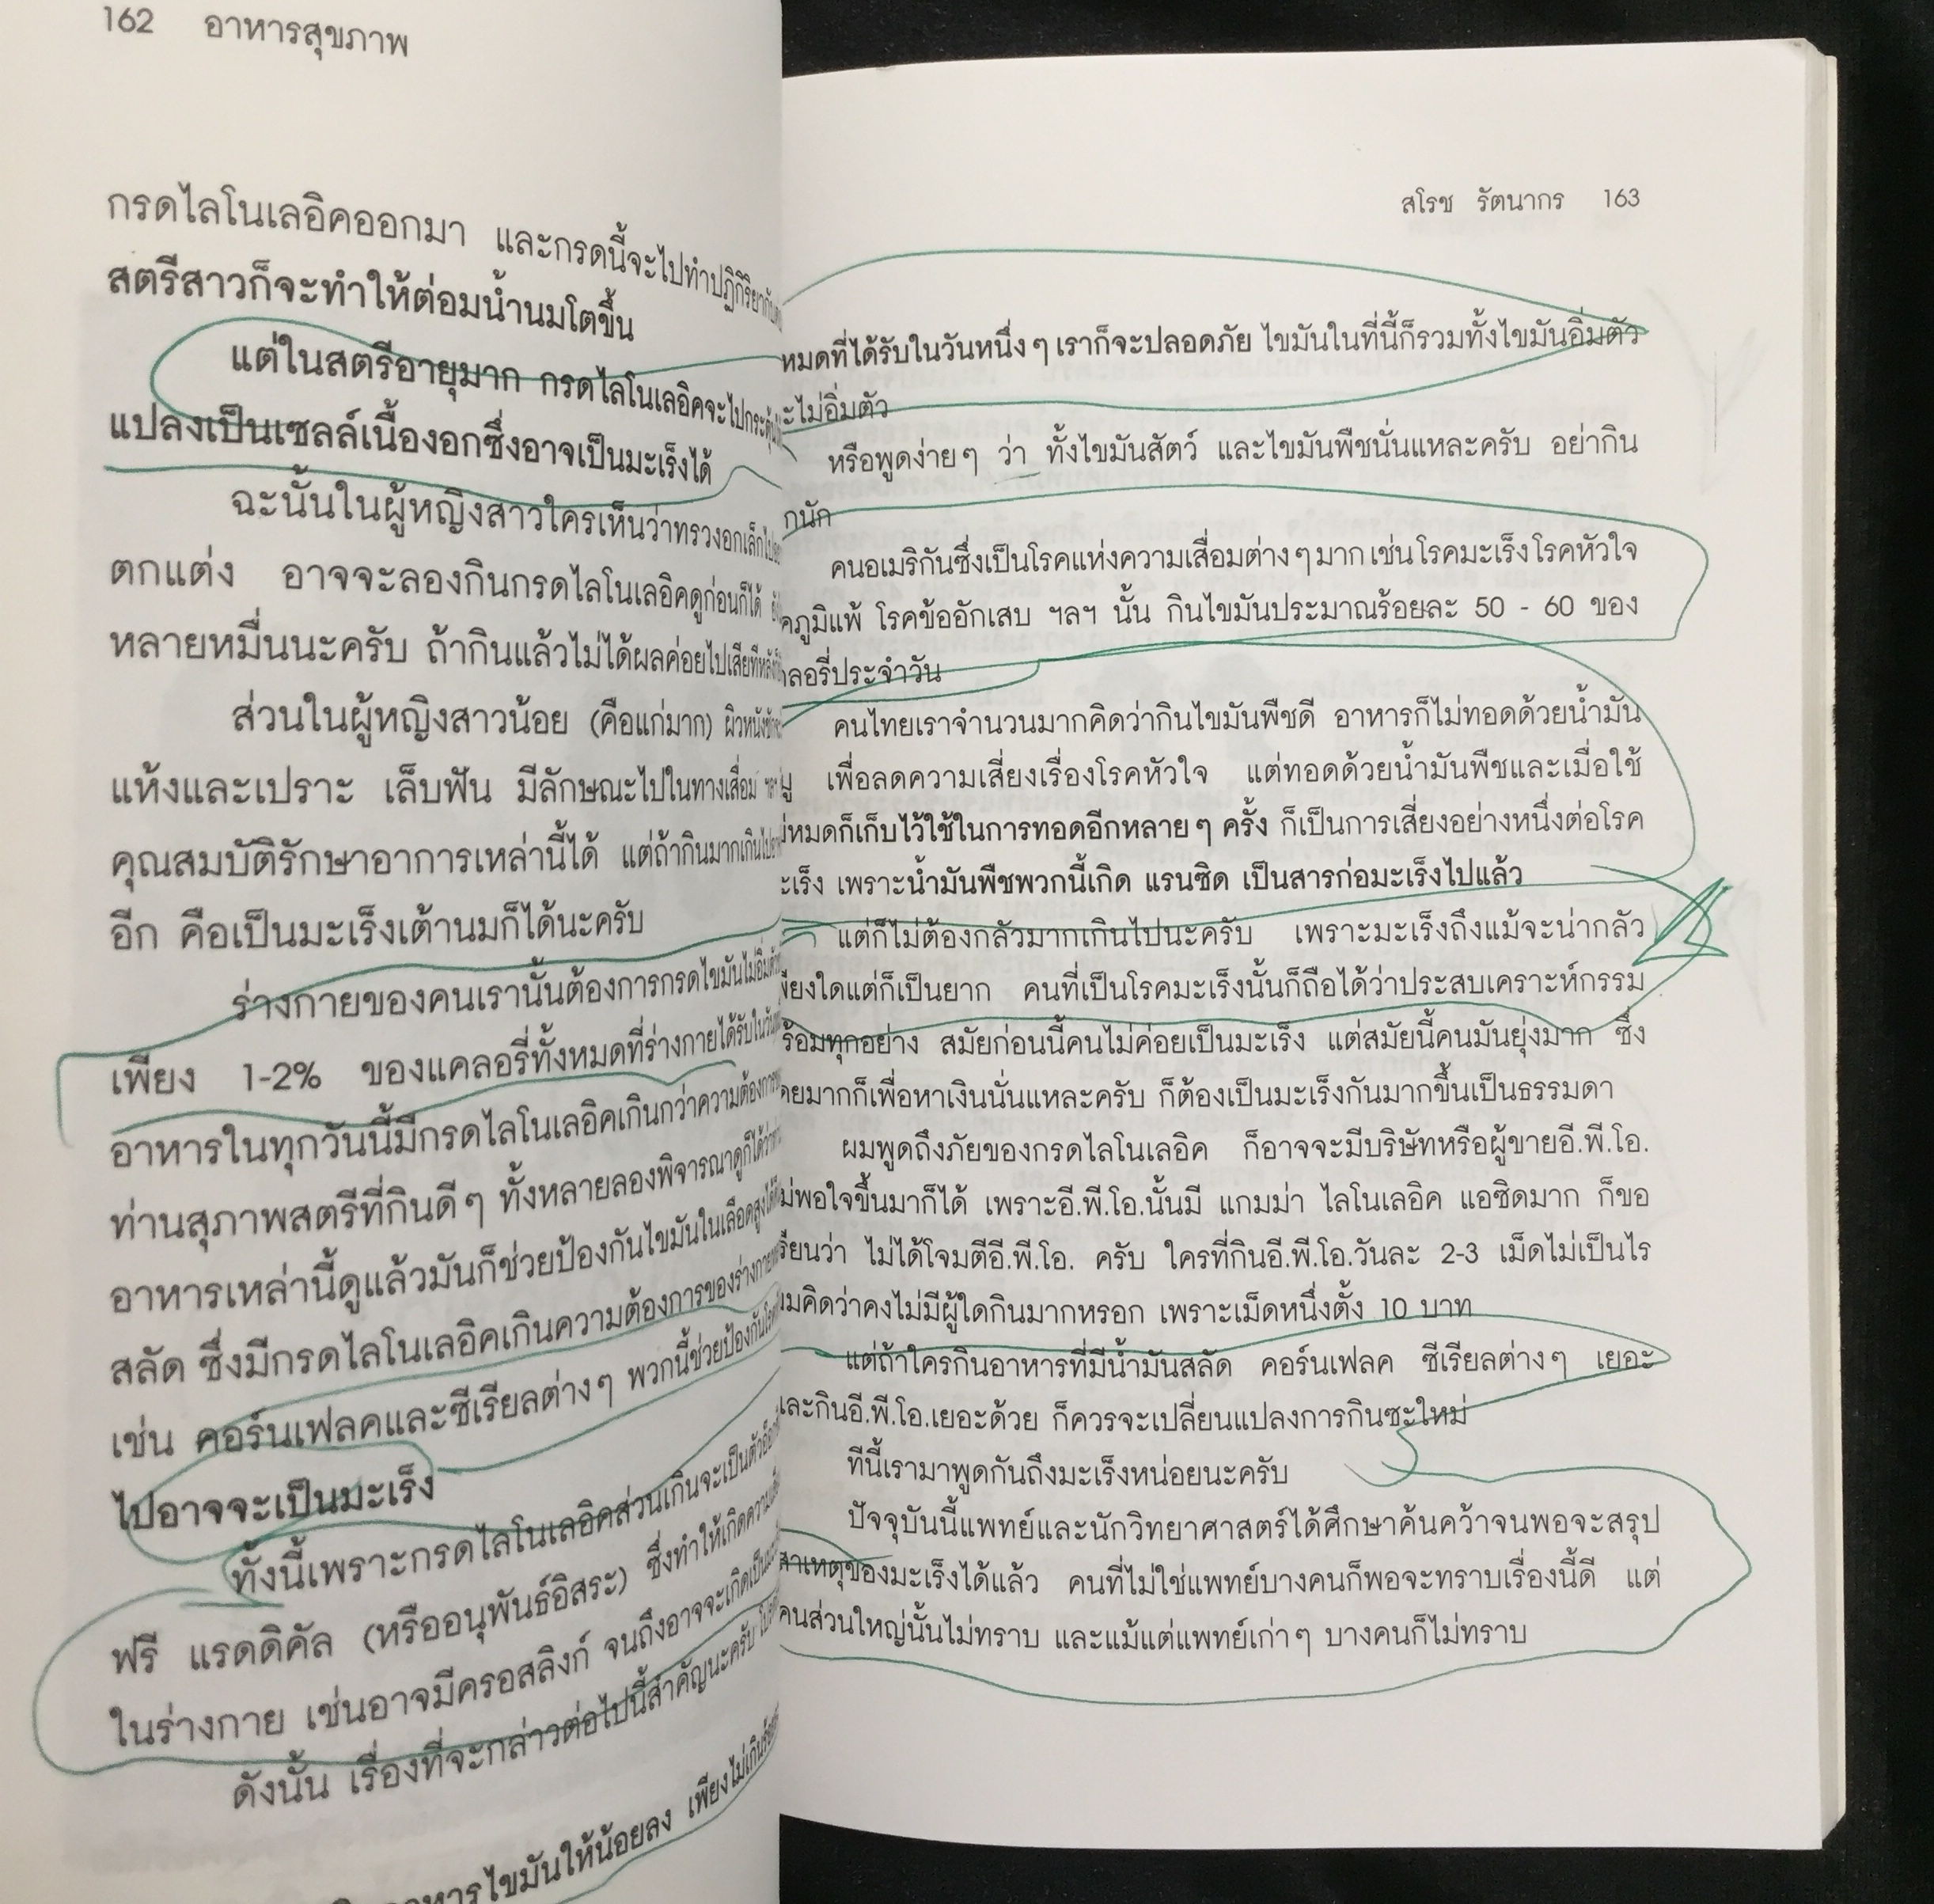 162 อาหารสุขภาพ
กรดไลโนเลอิคออกมา และกรดนี้จะไปทำปฏิกิริยากับ
สตรีสาวก็จะทำให้ต่อมน้ำนมโตขึ้น
แต่ในสตรีอายุมาก กรดไลโนเลอิคจะไปกระตุ้น
แปลงเป็นเซลล์เนื้องอกซึ่งอาจเป็นมะเร็งได้
ฉะนั้นในผู้หญิงสาวใครเห็นว่าทรวงอกเล็กไป
ตกแต่ง อาจจะลองกินกรดไลโนเลอิคดูก่อนก็ได้
หลายหมื่นนะครับ ถ้ากินแล้วไม่ได้ผลค่อยไปเสียทีหลัง
ส่วนในผู้หญิงสาวน้อย (คือแก่มาก) ผิวหนัง
แห้งและเปราะ เล็บฟัน มีลักษณะไปในทางเสื่อม
คุณสมบัติรักษาอาการเหล่านี้ได้ แต่ถ้ากินมากเกินไป
อีก คือเป็นมะเร็งเต้านมก็ได้นะครับ
ร่างกายของคนเรานั้นต้องการกรดไขมันไม่อิ่มตัว
เพียง 1-2% ของแคลอรี่ทั้งหมดที่ร่างกายได้รับในวัน
อาหารในทุกวันนี้มีกรดไลโนเลอิคเกินกว่าความต้องการ
ท่านสุภาพสตรีที่กินดีๆ ทั้งหลายลองพิจารณาดูก็ได้ว่า
อาหารเหล่านี้ดูแล้วมันก็ช่วยป้องกันไขมันในเลือดสูงได้
สลัด ซึ่งมีกรดไลโนเลอิคเกินความต้องการของร่างกาย
เช่น คอร์นเฟลคและซีเรียลต่างๆ พวกนี้ช่วยป้องกันโรค
ไปอาจจะเป็นมะเร็ง
ทั้งนี้เพราะกรดไลโนเลอิคส่วนเกินจะเป็นตัว
ฟรี แรดดิคัล (หรืออนุพันธ์อิสระ) ซึ่งทำให้เกิดความ
ในร่างกาย เช่นอาจมีครอสลิงก์ จนถึงอาจจะเกิดเป็น
ดังนั้น เรื่องที่จะกล่าวต่อไปนี้สำคัญนะครับ
อาหารไขมันให้น้อยลง เพียงไม่เกินร้อย
สโรช รัตนากร 163
หมดที่ได้รับในวันหนึ่งๆ เราก็จะปลอดภัย ไขมันในที่นี้ก็รวมทั้งไขมันอิ่มตัว
ะไม่อิ่มตัว
หรือพูดง่ายๆ ว่า ทั้งไขมันสัตว์ และไขมันพืชนั่นแหละครับ อย่ากิน
กนัก
คนอเมริกันซึ่งเป็นโรคแห่งความเสื่อมต่างๆ มาก เช่น โรคมะเร็ง โรคหัวใจ
คภูมิแพ้ โรคข้ออักเสบ ฯลฯ นั้น กินไขมันประมาณร้อยละ 50 - 60 ของ
ลอรี่ประจำวัน
คนไทยเราจำนวนมากคิดว่ากินไขมันพืชดี อาหารก็ไม่ทอดด้วยน้ำมัน
มู เพื่อลดความเสี่ยงเรื่องโรคหัวใจ แต่ทอดด้วยน้ำมันพืชและเมื่อใช้
หมดก็เก็บไว้ใช้ในการทอดอีกหลายๆ ครั้ง ก็เป็นการเสี่ยงอย่างหนึ่งต่อโรค
ะเร็ง เพราะน้ำมันพืชพวกนี้เกิด แรนซิด เป็นสารก่อมะเร็งไปแล้ว
แต่ก็ไม่ต้องกลัวมากเกินไปนะครับ เพราะมะเร็งถึงแม้จะน่ากลัว
พียงใดแต่ก็เป็นยาก คนที่เป็นโรคมะเร็งนั้นก็ถือได้ว่าประสบเคราะห์กรรม
ร้อมทุกอย่าง สมัยก่อนนี้คนไม่ค่อยเป็นมะเร็ง แต่สมัยนี้คนมันยุ่งมาก ซึ่ง
ดยมากก็เพื่อหาเงินนั่นแหละครับ ก็ต้องเป็นมะเร็งกันมากขึ้นเป็นธรรมดา
ผมพูดถึงภัยของกรดไลโนเลอิค ก็อาจจะมีบริษัทหรือผู้ขายอี.พี.โอ.
ม่พอใจขึ้นมาก็ได้ เพราะอี.พี.โอ.นั้นมี แกมม่า ไลโนเลอิค แอซิดมาก ก็ขอ
รียนว่า ไม่ได้โจมตีอี.พี.โอ. ครับ ใครที่กินอี.พี.โอ.วันละ 2-3 เม็ดไม่เป็นไร
มคิดว่าคงไม่มีผู้ใดกินมากหรอก เพราะเม็ดหนึ่งตั้ง 10 บาท
แต่ถ้าใครกินอาหารที่มีน้ำมันสลัด คอร์นเฟลค ซีเรียลต่างๆ เยอะ
และกินอี.พี.โอ.เยอะด้วย ก็ควรจะเปลี่ยนแปลงการกินซะใหม่
ทีนี้เรามาพูดกันถึงมะเร็งหน่อยนะครับ
ปัจจุบันนี้แพทย์และนักวิทยาศาสตร์ได้ศึกษาค้นคว้าจนพอจะสรุป
สาเหตุของมะเร็งได้แล้ว คนที่ไม่ใช่แพทย์บางคนก็พอจะทราบเรื่องนี้ดี แต่
คนส่วนใหญ่นั้นไม่ทราบ และแม้แต่แพทย์เก่าๆ บางคนก็ไม่ทราบ